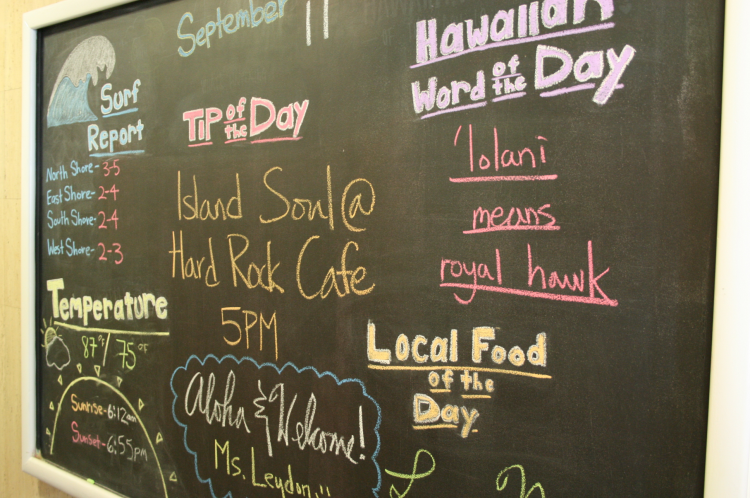 September 11
Surf
Report
North Shore- 3-5
East Shore- 2-4
South Shore- 2-4
West Shore- 2-3
Temperature
87°F/ 75°F
Sunrise- 6:12am
Sunset- 6:55pm
TIP of the Day
Island Soul @
Hard Rock Cafe
5PM
Aloha
& Welcome!
Ms. Leydon
Hawaiian
Word of the Day
'Iolani
means
royal hawk
Local Food
of the
Day